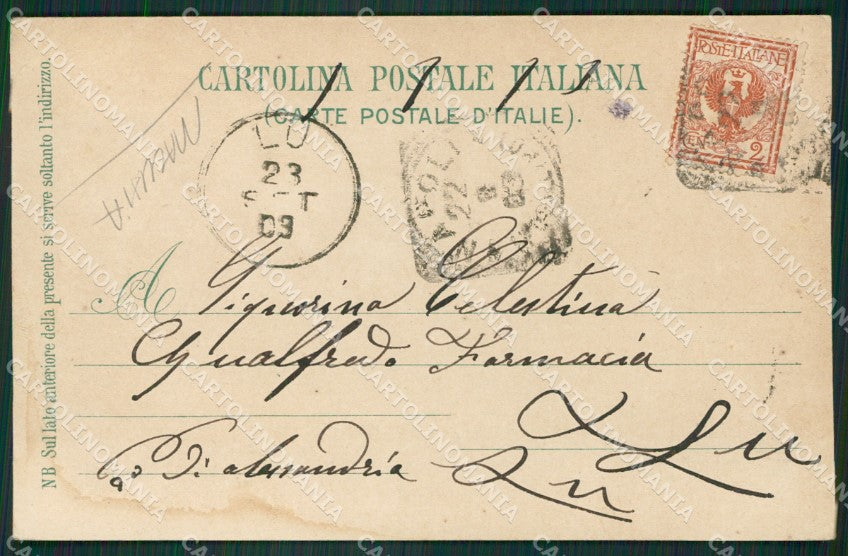 CARTOLINA POSTALE ITALIANA
(CARTE POSTALE D'ITALIE).
POSTE·ITALIANE
CENT. 2
LU
23
SET
03
22
NB Sul lato anteriore della presente si scrive soltanto l'indirizzo.
A Signorina Celestina
Gualfredo Farmacia
Lu
Pa Di alessandria
Lu
CARTOLINOMANIA